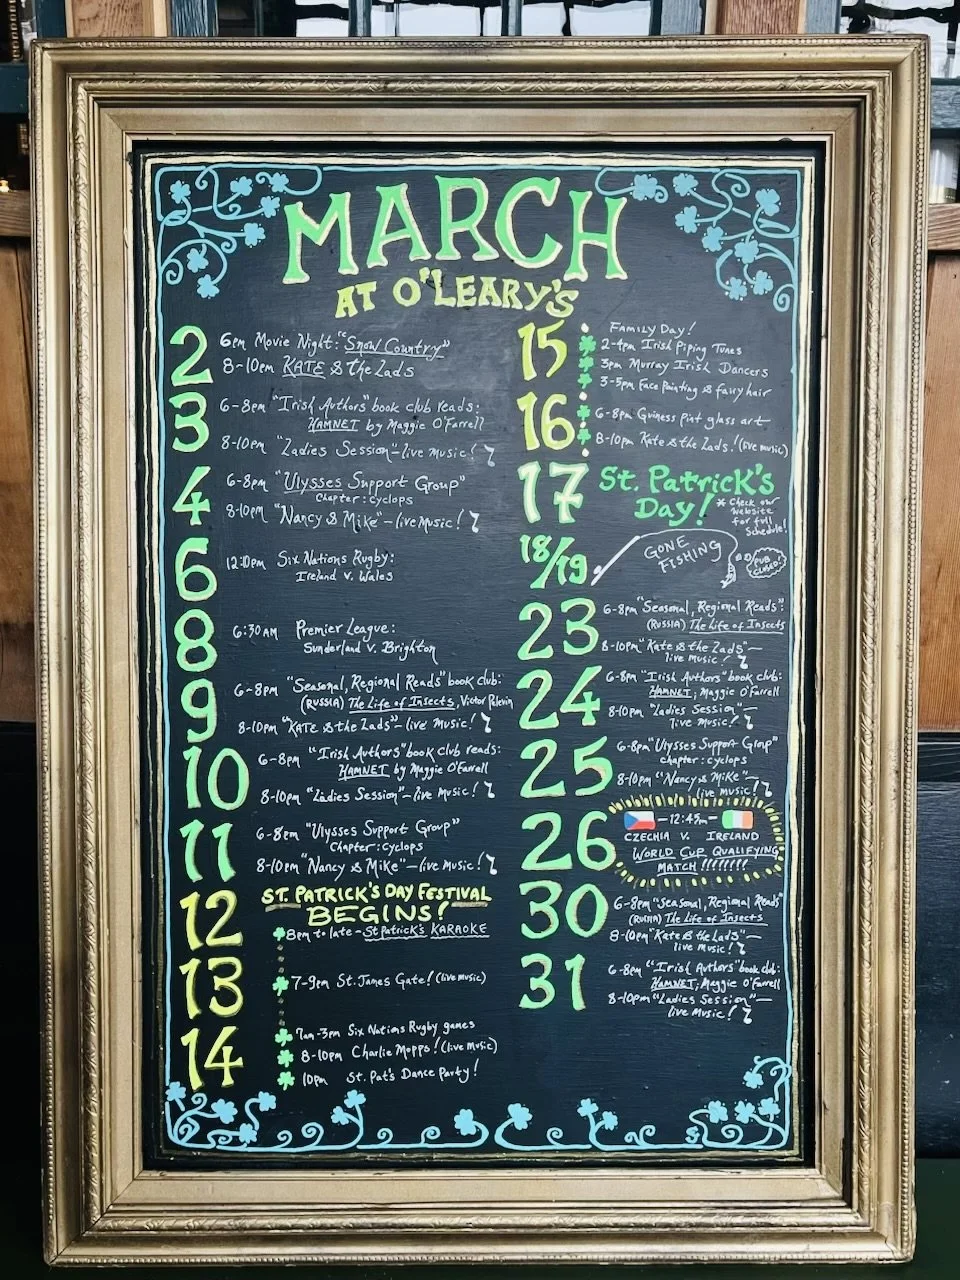 MARCH
AT O'LEARY'S
2
6pm Movie Night: "Snow Country"
8-10pm KATE & the Lads
3
6-8pm "Irish Authors" book club reads:
HAMNET by Maggie O'Farrell
8-10pm "Ladies Session" - live music!
4
6-8pm "Ulysses Support Group"
Chapter: cyclops
8-10pm "Nancy & Mike" - live Music!
6
12:10pm Six Nations Rugby:
Ireland v. Wales
8
6:30AM Premier League:
Sunderland v. Brighton
9
6-8pm "Seasonal, Regional Reads" book club:
(RUSSIA) The Life of Insects, Victor Pelevin
8-10pm "KATE & the Lads" - live Music!
10
6-8pm "Irish Authors" book club reads:
HAMNET by Maggie O'Farrell
8-10pm "Ladies Session" - live Music!
11
6-8pm "Ulysses Support Group"
Chapter: cyclops
8-10pm "Nancy & Mike" - live Music!
12
ST. PATRICK'S DAY FESTIVAL
BEGINS!
8pm to late - St Patrick's KARAOKE
13
7-9pm St. James Gate! (live music)
14
7am-3pm Six Nations Rugby games
8-10pm Charlie Mopps! (live music)
10pm St. Pat's Dance Party!
15
FAMILY Day!
2-4pm Irish Piping Tunes
3pm Murray Irish Dancers
3-5pm Face Painting & fairy hair
16
6-8pm Guiness pint glass art
8-10pm Kate & the Lads! (live music)
17
St. Patrick's
Day!
* Check our
website
for full
schedule!
18/19
GONE
FISHING
PUB
CLOSED!
23
6-8pm "Seasonal, Regional Reads":
(RUSSIA) The Life of Insects
8-10pm "Kate & the Lads" -
live Music!
24
6-8pm "Irish Authors" book club:
HAMNET; Maggie O'Farrell
8-10pm "Ladies Session" -
live Music!
25
6-8pm "Ulysses Support Group"
chapter: cyclops
8-10pm "Nancy & Mike" -
live music!
26
- 12:45pm -
CZECHIA V. IRELAND
WORLD CUP QUALIFYING
MATCH !!!!!!!!
30
6-8pm "Seasonal, Regional Reads"
(RUSSIA) The Life of Insects
8-10pm "Kate & the Lads" -
live Music!
31
6-8pm "Irish Authors" book club:
HAMNET; Maggie O'Farrell
8-10pm "Ladies Session" -
live Music!